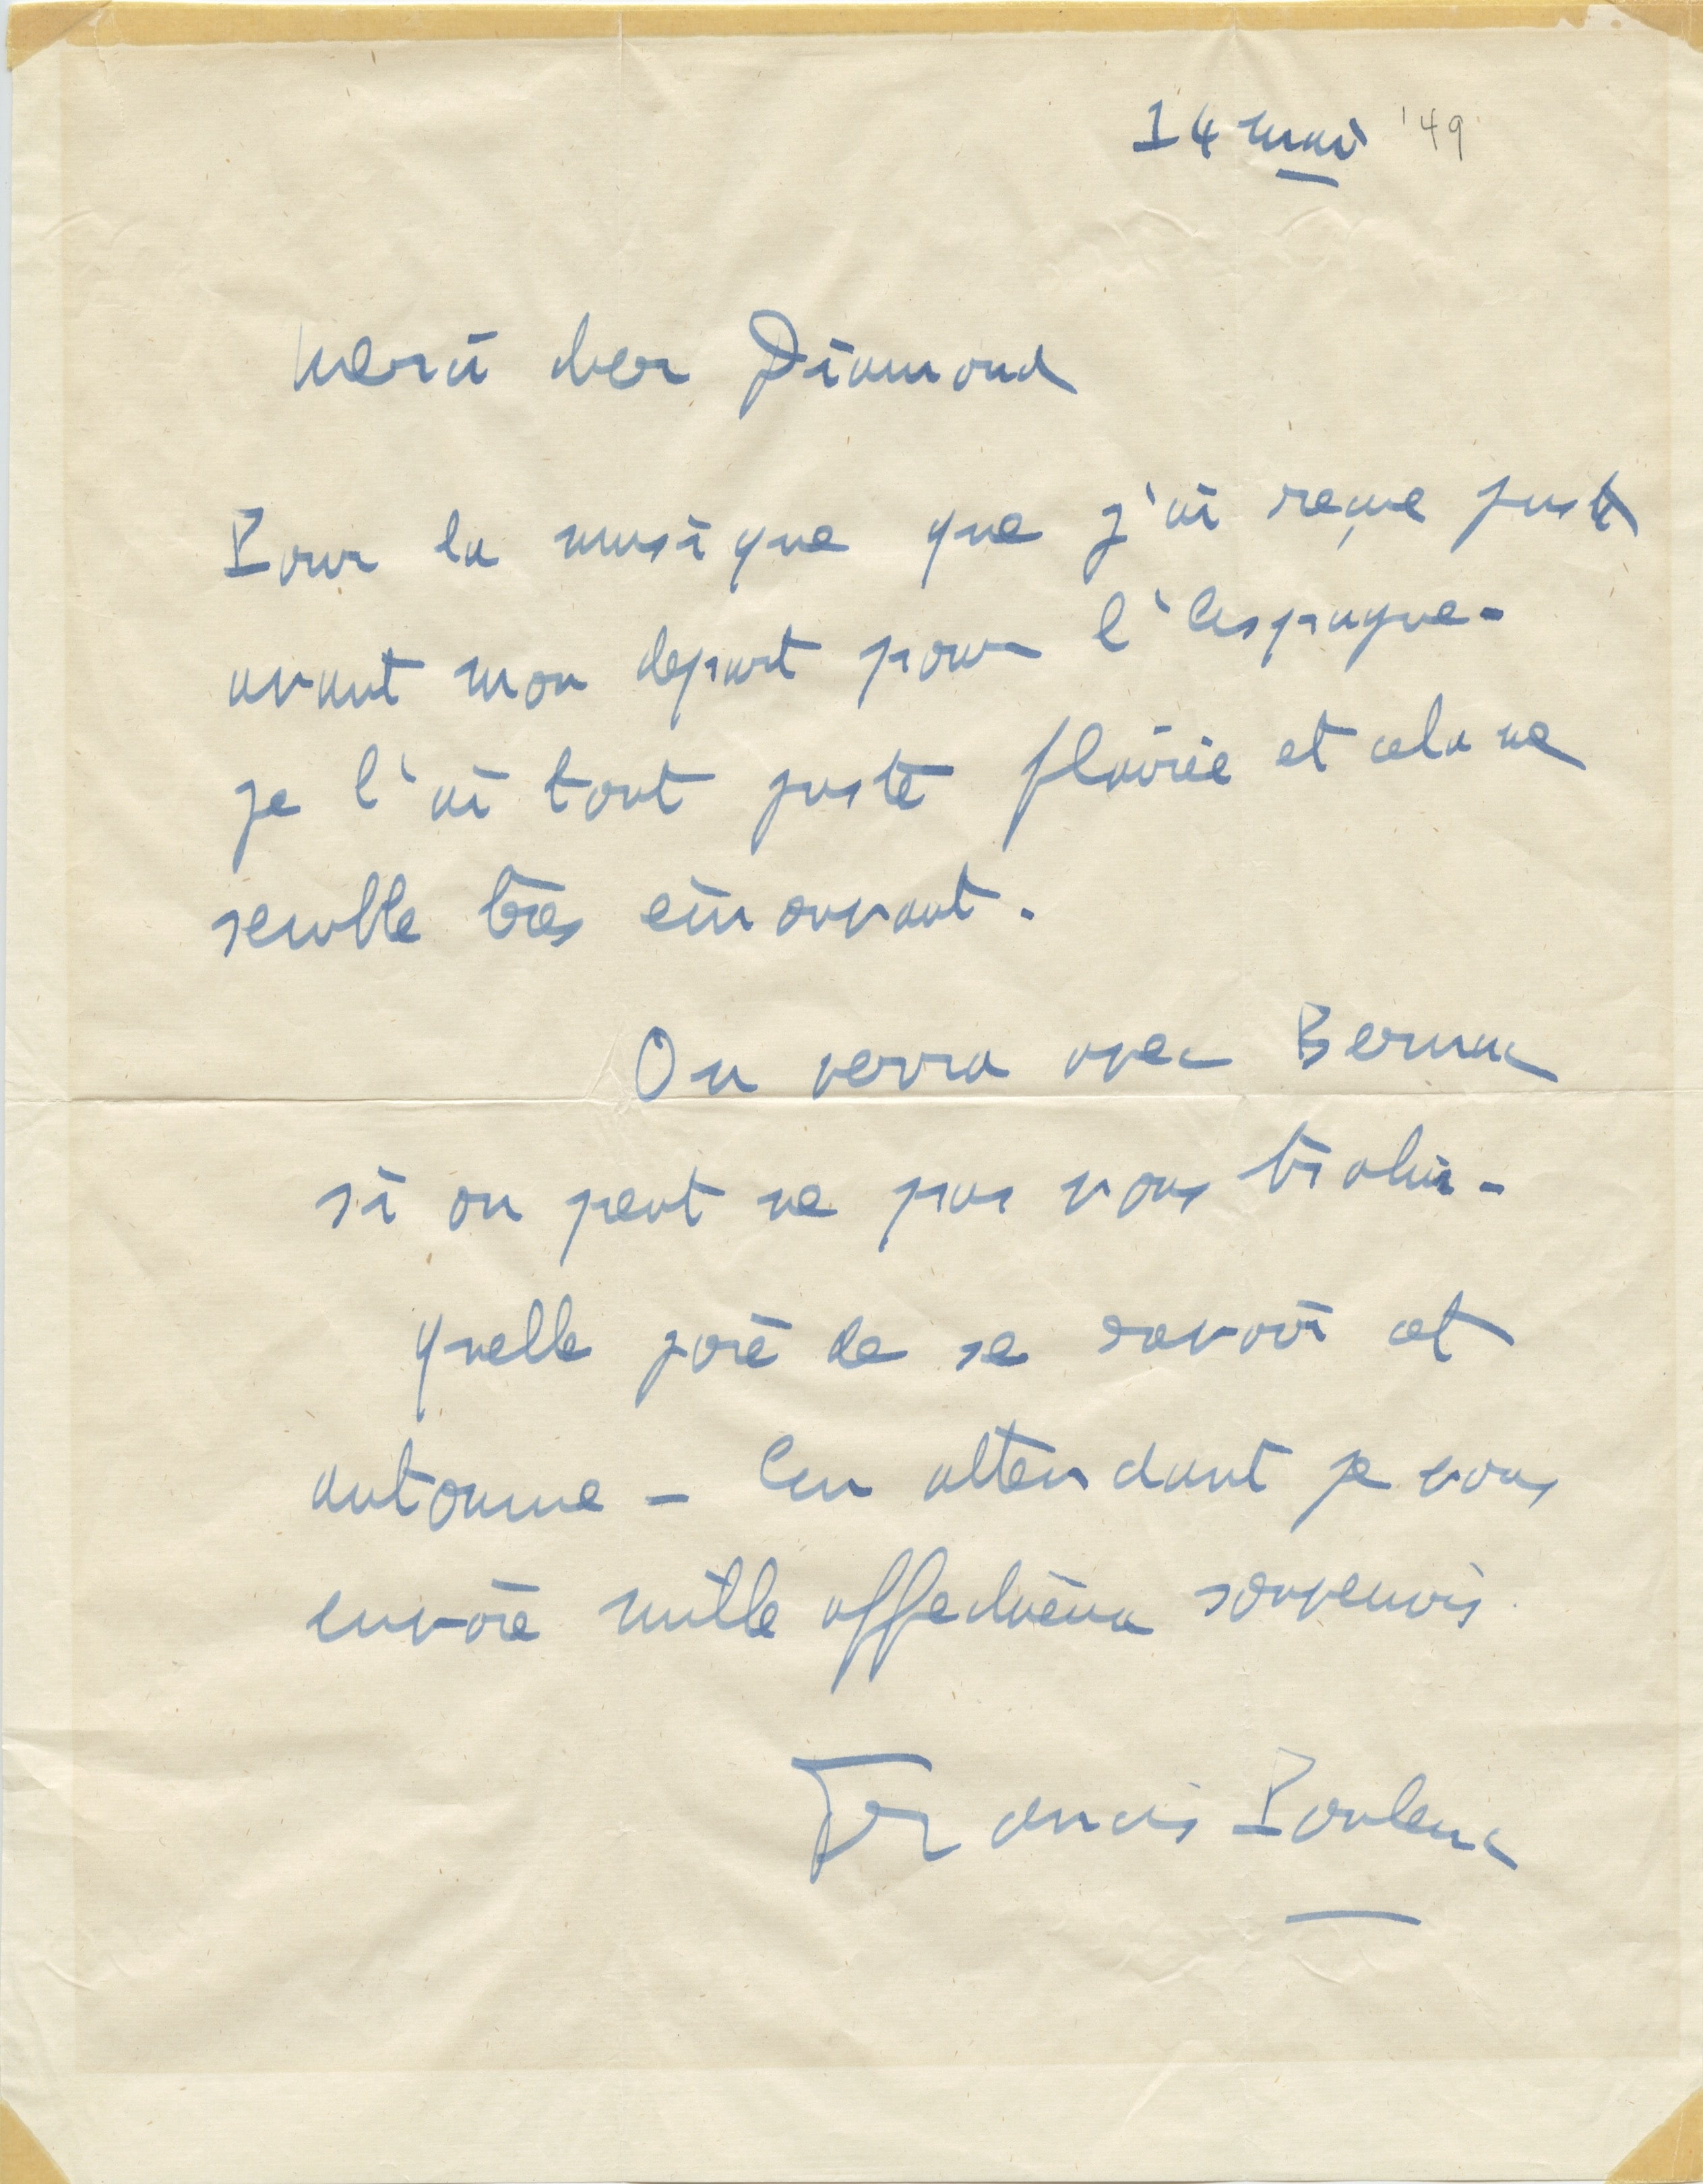 14 mai '49
Merci cher Diamond
Pour la musique que j'ai reçue juste
avant mon depart pour l'Espagne -
je l'ai tout juste flairée et cela me
semble très émouvant.
On verra avec Bernac
si on peut ne pas vous trahir -
quelle joie de se revoir cet
automne - En attendant je vous
envoie mille affectueux souvenirs
Francis Poulenc